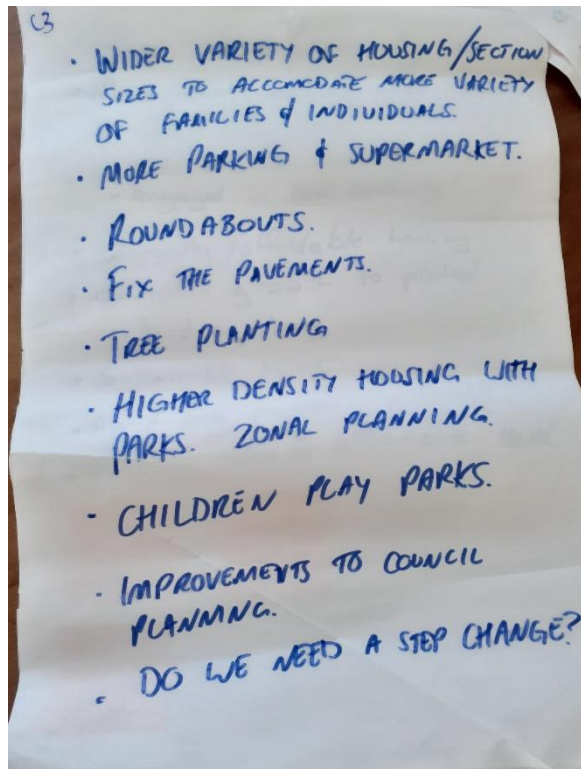 C3
• WIDER VARIETY OF HOUSING/SECTION
SIZES TO ACCOMODATE MORE VARIETY
OF FAMILIES & INDIVIDUALS.
• MORE PARKING & SUPERMARKET.
• ROUNDABOUTS.
• FIX THE PAVEMENTS.
• TREE PLANTING
• HIGHER DENSITY HOUSING WITH
PARKS. ZONAL PLANNING.
• CHILDREN PLAY PARKS.
• IMPROVEMENTS TO COUNCIL
PLANNING.
• DO WE NEED A STEP CHANGE?